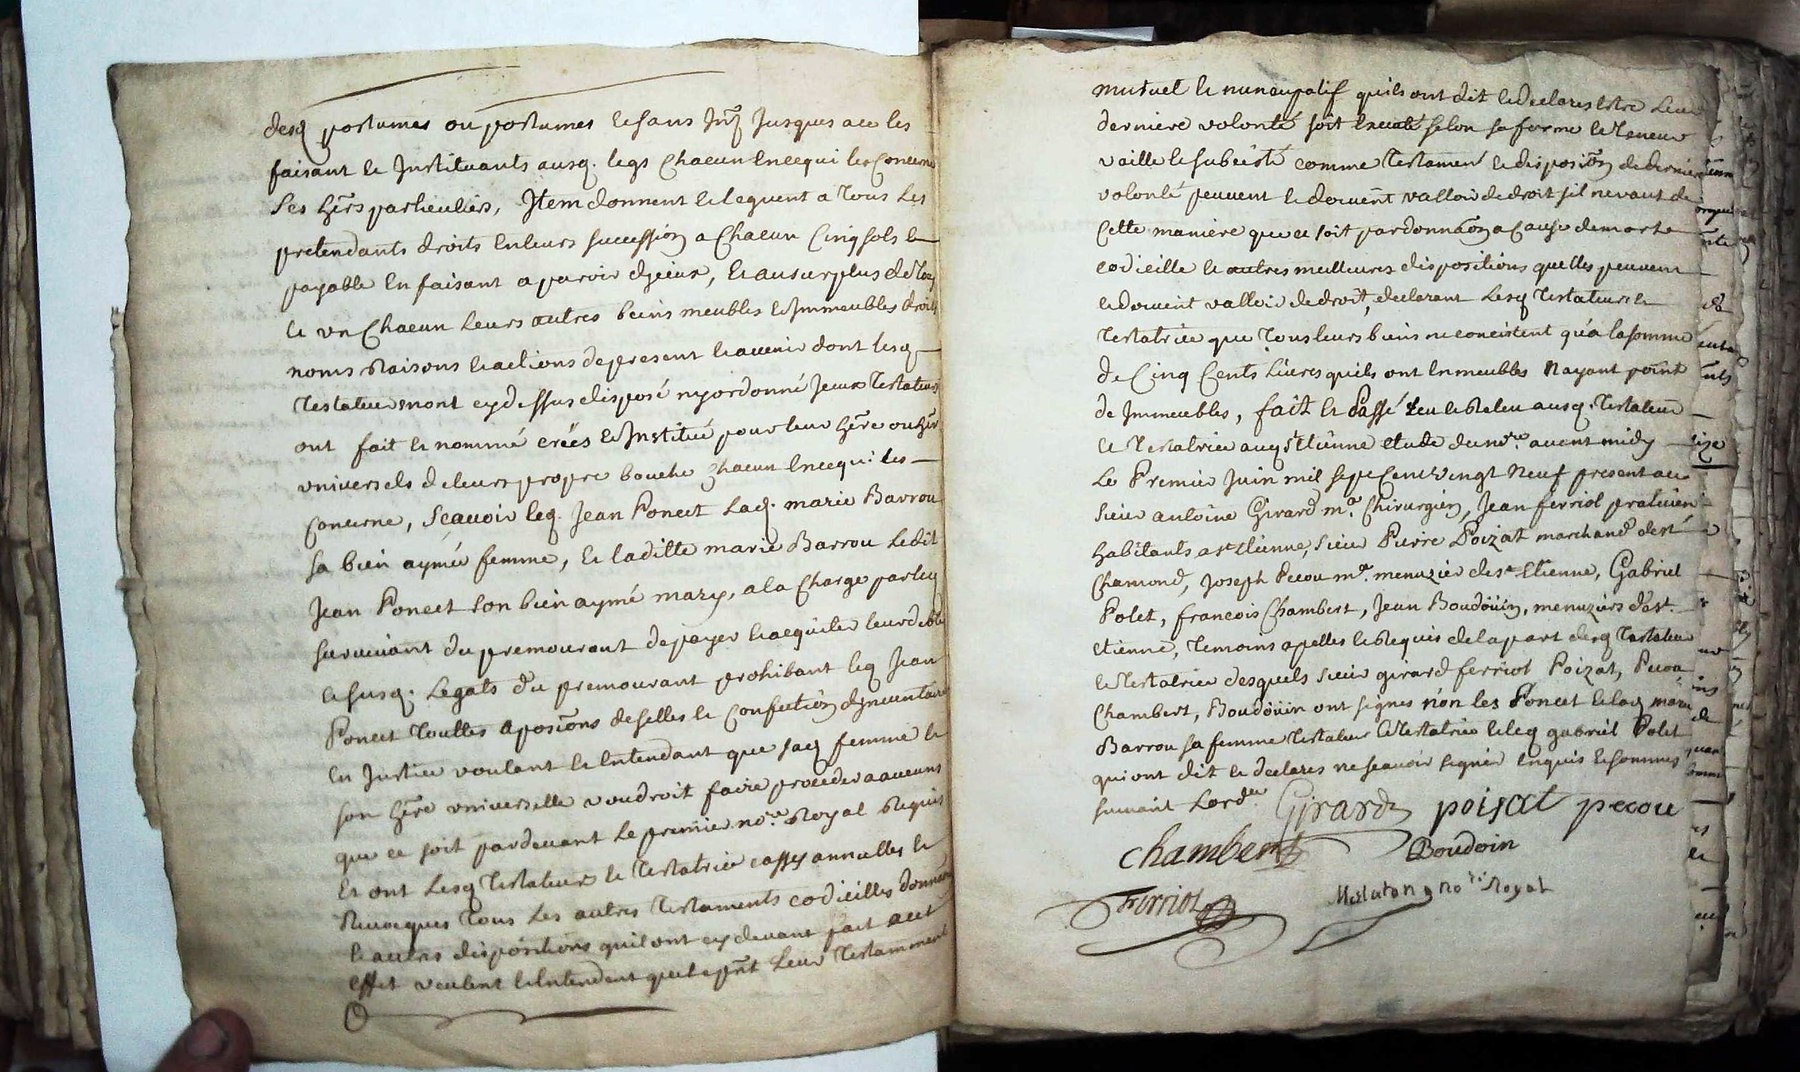 desq postumes ou postumes et sans Inq Jusques a ce les
faisant et Instituants ausq. legs Chacun en ce qui les Concerne
ses hers particuliers, Item donnent et leguent a tous les
pretendants droits en leurs succession a Chacun Cinq sols
payable en faisant aparoir d'jceux, et au surplus de tous
et un Chacun leurs autres biens meubles et Immeubles droits
noms raisons et actions de present et avenir dont lesq
testateurs n'ont cy dessus disposé ny ordonné Jceux testateurs
ont fait et nommé crées et Institué pour leur here ou her
universels de leurs propre bouche Chacun en ce qui les
Concerne, sçavoir leq. Jean Poncet laq. marie Barrou
sa bien aymée femme, et laditte marie Barrou ledit
Jean Poncet son bien aymé mary, a la Charge par le
survivant du premourant de payer et acquiter leur debtes
et susq. Legats du premourant prohibant leq Jean
Poncet touttes aposions de selles et Confection d'jnventaire
en Justice voulant et entendant que saq femme et
son here universelle voudroit faire proceder a aucuns
que ce soit pardevant le premier nore Royal Requis
Et ont Lesq testateur et testatrice cassés annulles et
Revocques tous les autres testaments codicilles donnaons
et autres dispositions qu'il ont cy devant fait a cet
effet veulent et entendent que le pnt Leur testamment
mutuel et nuncupatif quils ont dit et declares estre leur
derniere volonté soit executé selon sa forme et teneur
vaille et subcisté comme testament et disposion de derniere
volonté peuvent et doivent valloir de droit sil ne vaut de
Cette maniere que ce soit par donnaon a Cause de mort
codicille et autres meilleures dispositions quelles peuvent
et doivent valloir de droit, declarant Lesq testateur et
testatrice que tous leurs biens ne concistent qu'a la somme
de Cinq Cents Livres quils ont en meubles Nayant point
de Immeubles, fait et Passé leu et releu ausq. testateur
et testatrice aud St Etienne etude du nore. avant midy
Le Premier Juin mil sept Cent vingt Neuf present
sieur antoine Girard me. Chirurgien, Jean ferriol praticien
habitants a st Etienne, sieur Pierre Poizat marchand de st
Chamond, Joseph Pecou me. menuzier de st Etienne, Gabriel
Polet, francois Chambert, Jean Boudoüin, menuziers dast.
etienne, temoins apelles et Requis de la part desq testateur
et testatrice desquels sieur girard ferriol Poizat, Pecou
Chambert, Boudoüin ont signes non les Poncet et laq marie
Barrou sa femme testateur et testatrice et leq gabriel Polet
qui ont dit et declares ne scavoir signer enquis et sommes
suivant Lorde.
Girard poisat pecou
chambert Boudoin
Ferriol nore Royal